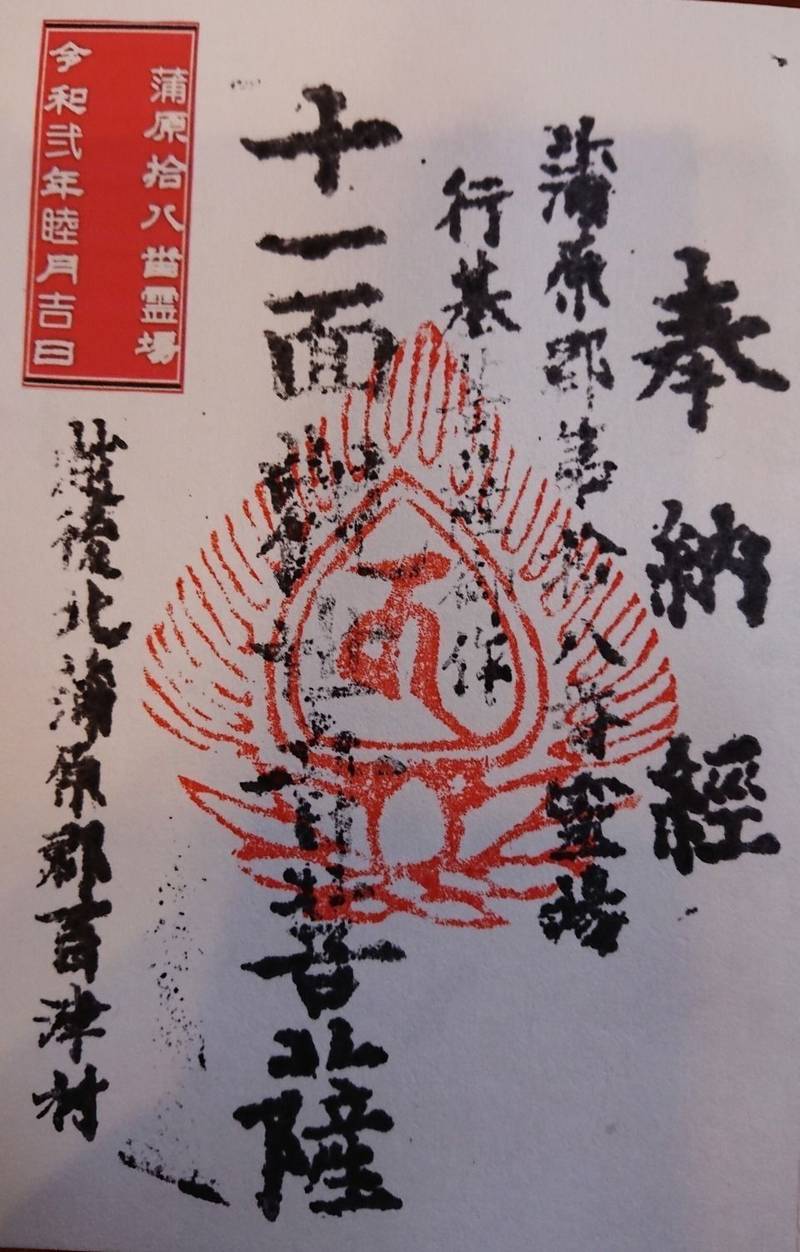 奉納經
蒲原郡第拾八番霊場
行基菩薩御作
十一面觀世音菩薩
越後北蒲原郡百津村
蒲原拾八番霊場
令和弐年睦月吉日